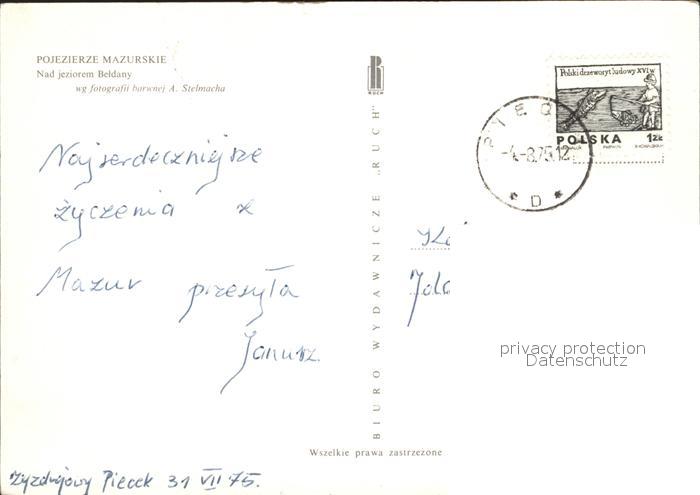 POJEZIERZE MAZURSKIE
Nad jeziorem Bełdany
wg fotografii barwnej A. Stelmacha
Najserdeczniejsze
życzenia z
Mazur przesyła
Janusz.
Zyzdrojowy Piecek 31 VII 75.
BIURO WYDAWNICZE „RUCH"
RUCH
Wszelkie prawa zastrzeżone
Polski drzeworyt ludowy XVI w
POLSKA 1zł
-4.-8.75.12
D
privacy protection
Datenschutz